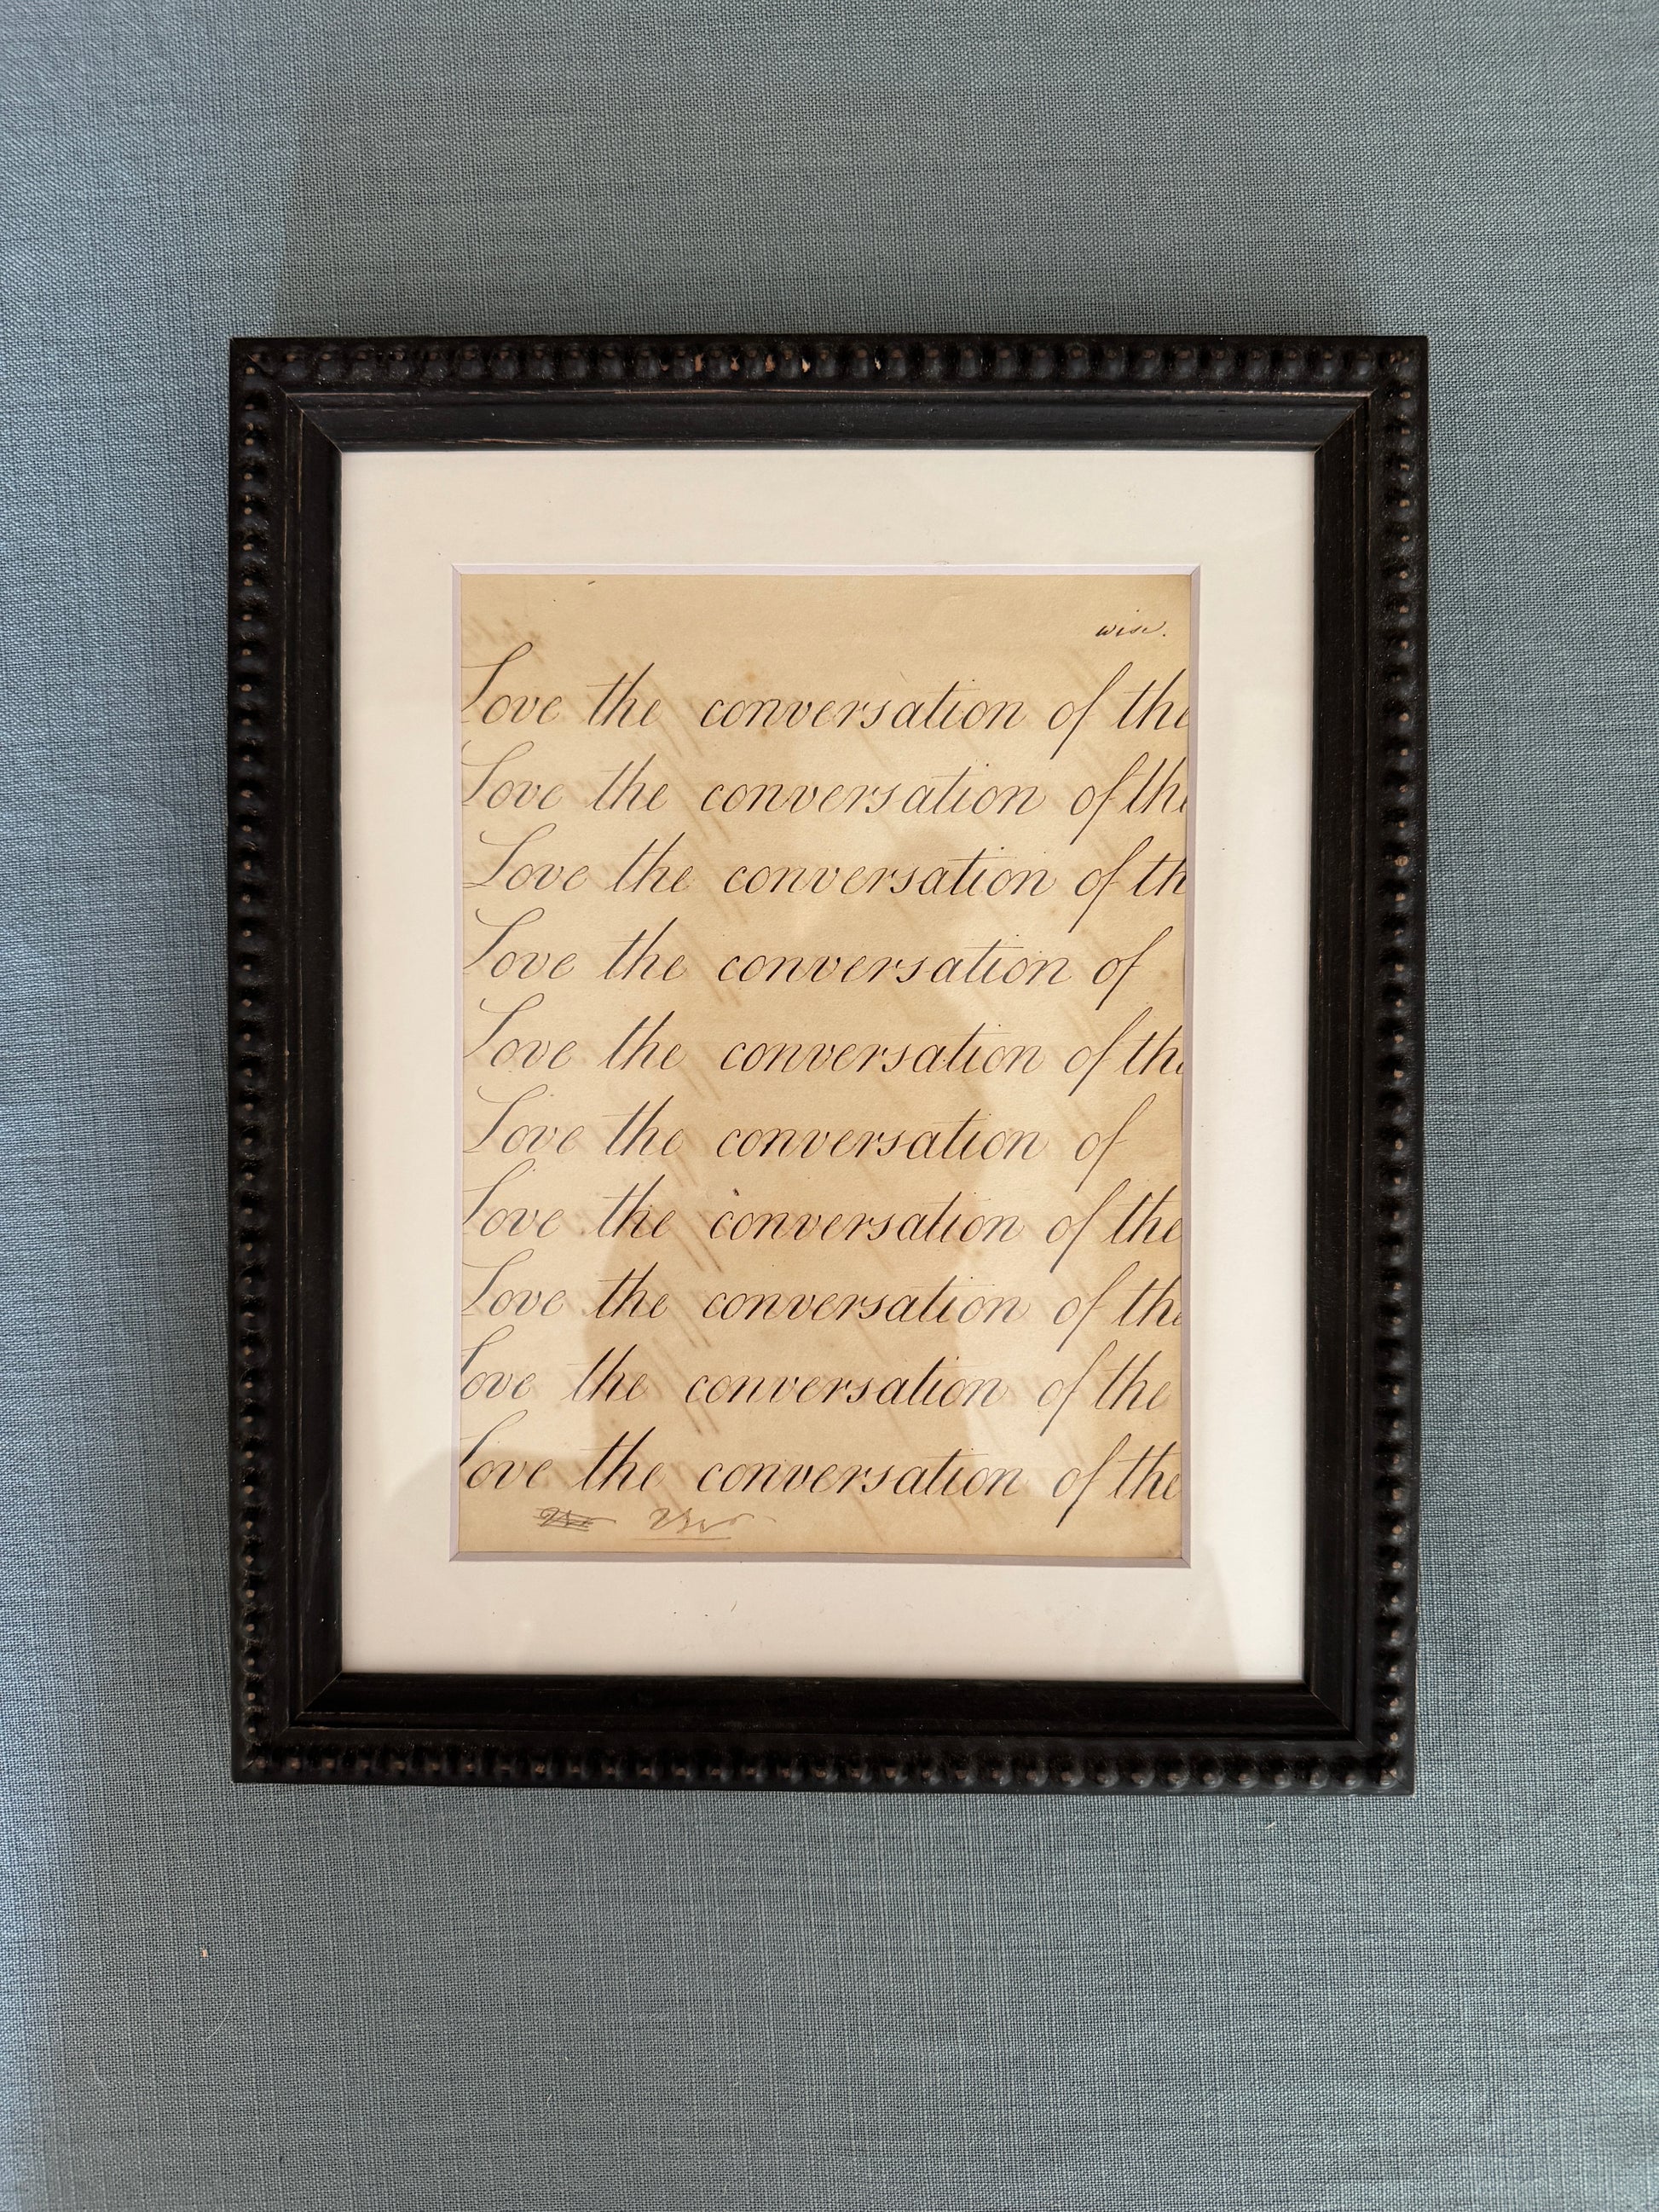 wise.
Love the conversation of the
Love the conversation of the
Love the conversation of th
Love the conversation of
Love the conversation of the
Love the conversation of
Love the conversation of the
Love the conversation of the
ove the conversation of the
Love the conversation of the